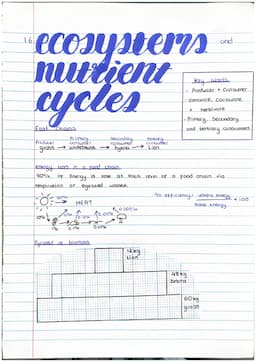 1.6 ecosystems and
nutrient
cycles
Key words
- Producer + Consumer
- Omnivore, Carnivore
+ Herbivore
- Primary, Secondary
and tertiary consumers
Food Chains
Producer Primary consumer Secondary consumer Tertiary consumer
grass → wildebeest → hyena → Lion
Energy loss in a food chain
90% of Energy is lost at each level of a food chain via
respiration or egested waste.
% efficiency: useful energy
total energy × 100
HEAT
Pyramid of biomass
Lion
60kg
grass